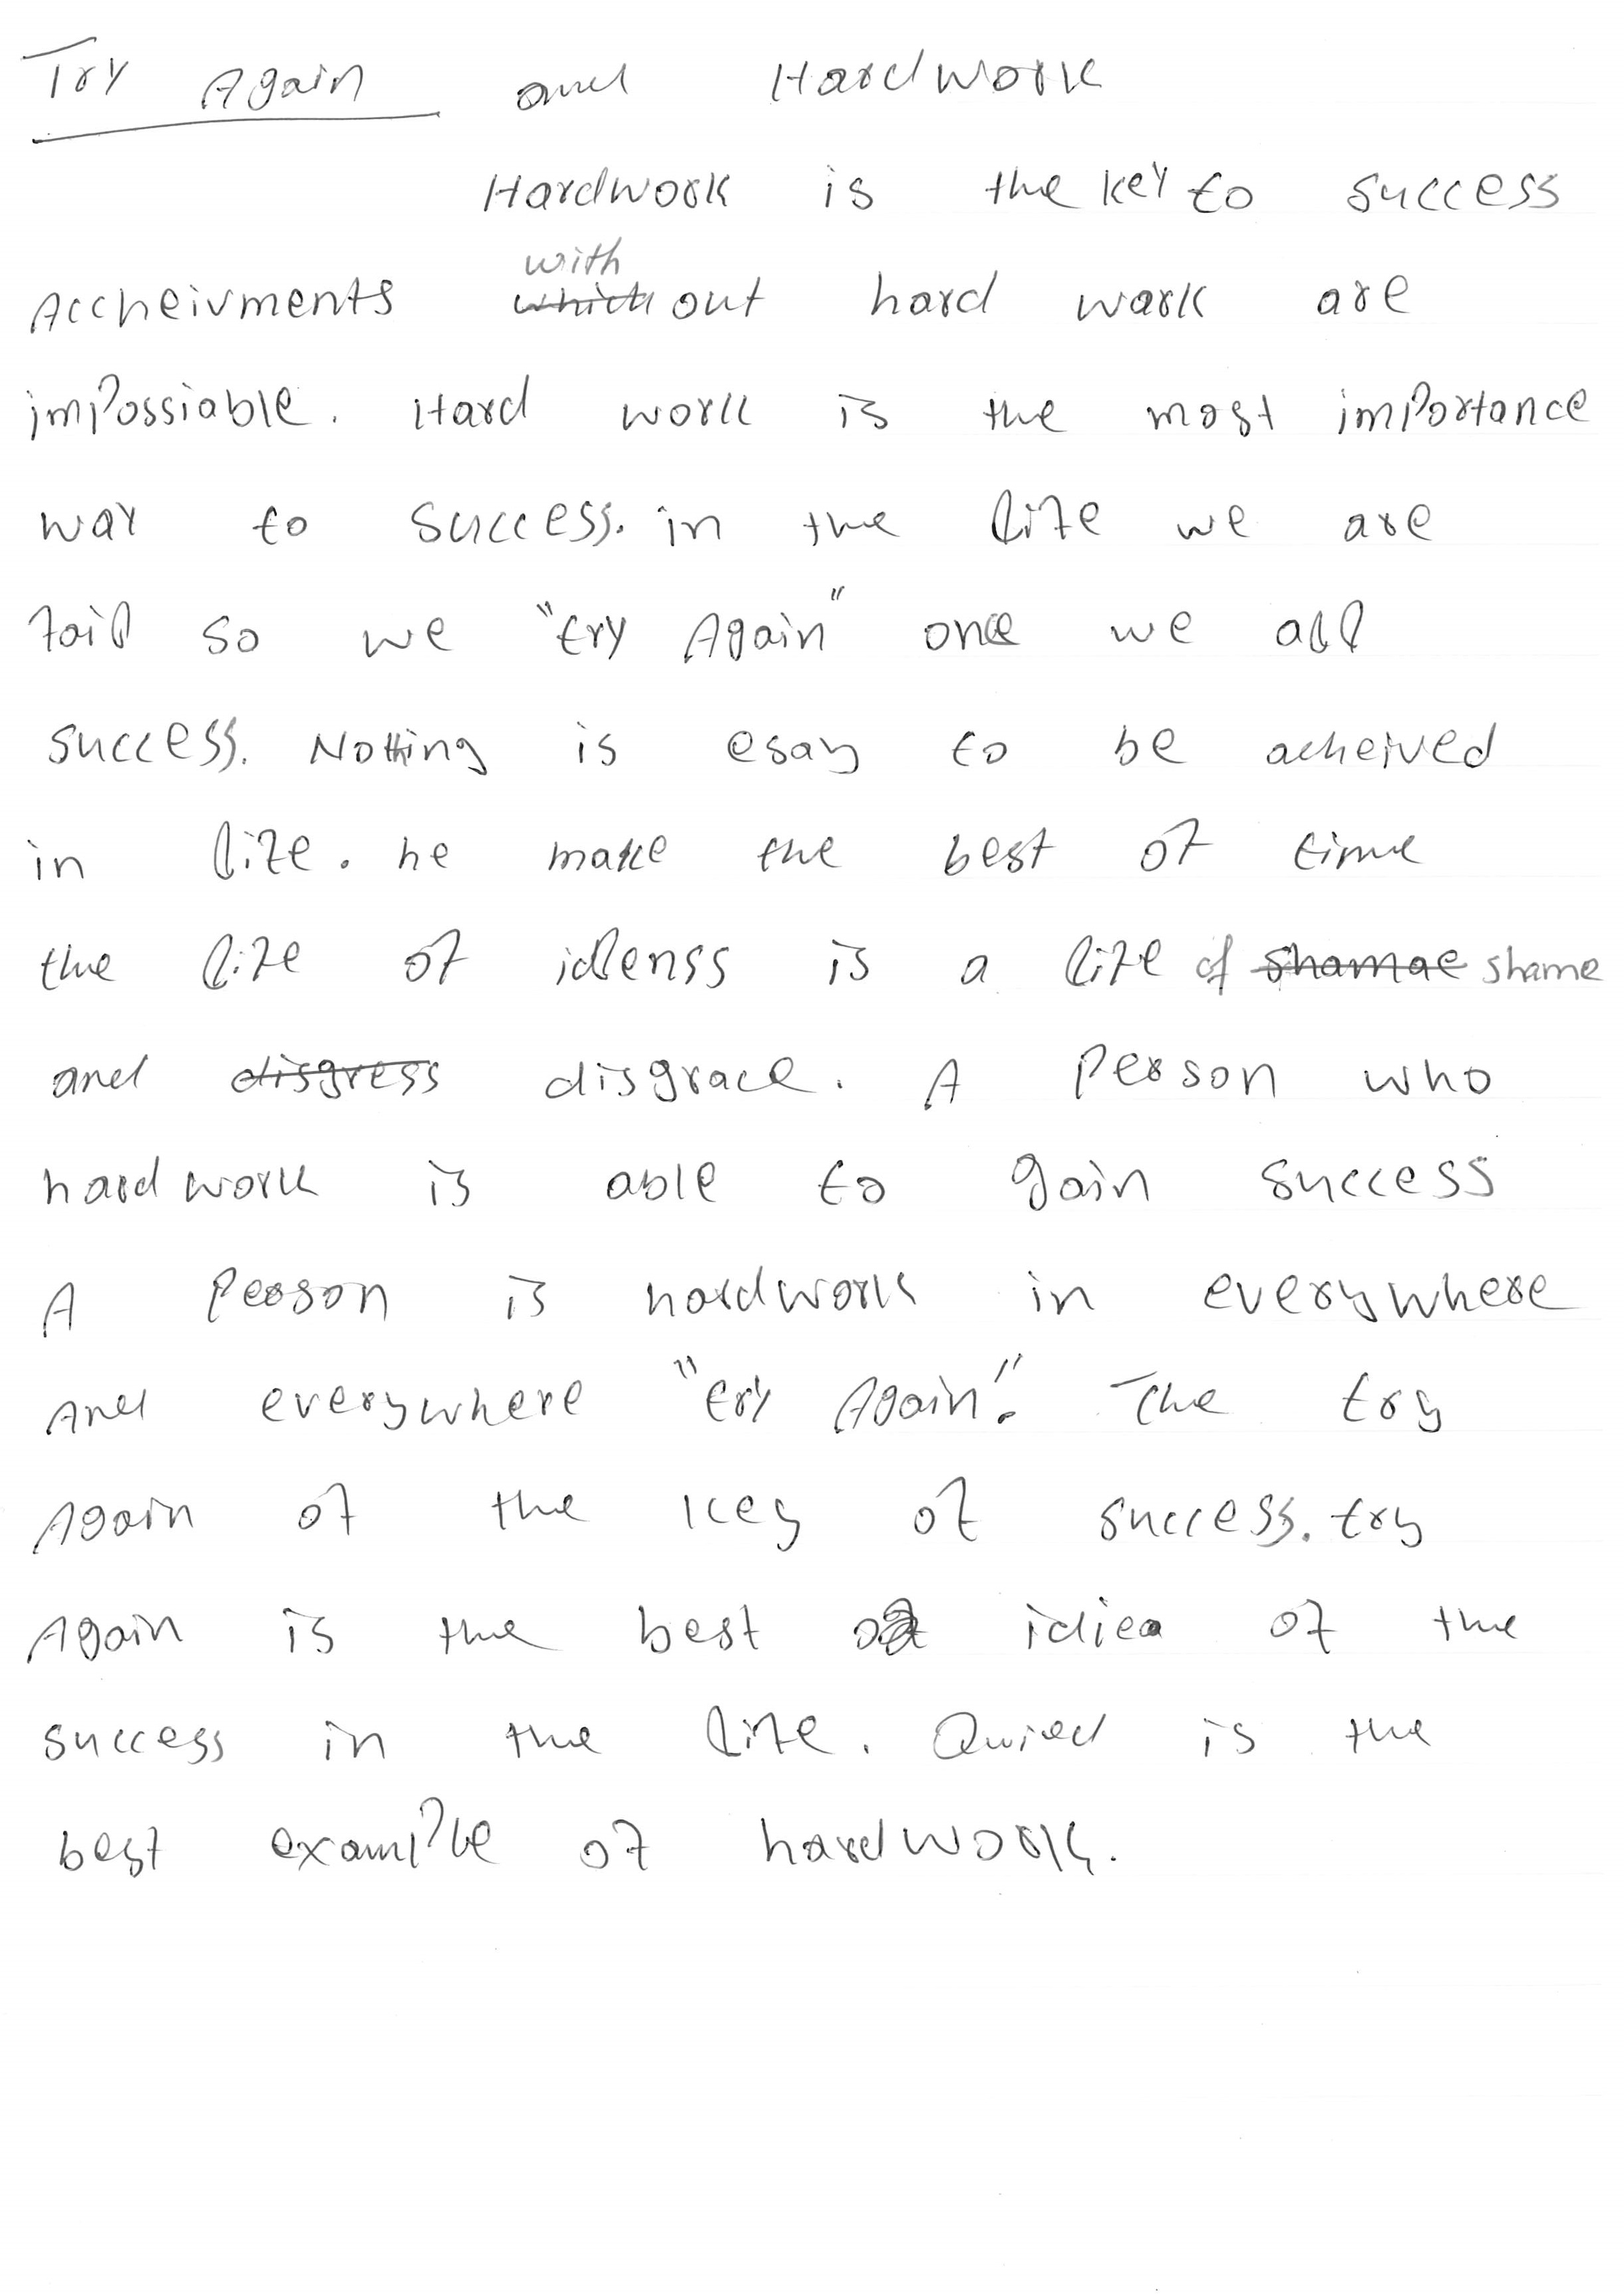 Try Again and Hardwork
Hardwork is the key to success
with
Accheivments which out hard wark are
impossiable. Hard work is the most importance
way to success. in the life we are
fail so we "try Again" once we all
success. Nothing is esay to be acheived
in life. he make the best of time
the life of idlenss is a life of shamae shame
and disgress disgrace. A person who
hard work is able to gain success
A person is hardwork in everywhere
And everywhere "try Again". The try
Again of the key of success. try
Again is the best idiea of the
success in the life. Quied is the
best example of hardwork.